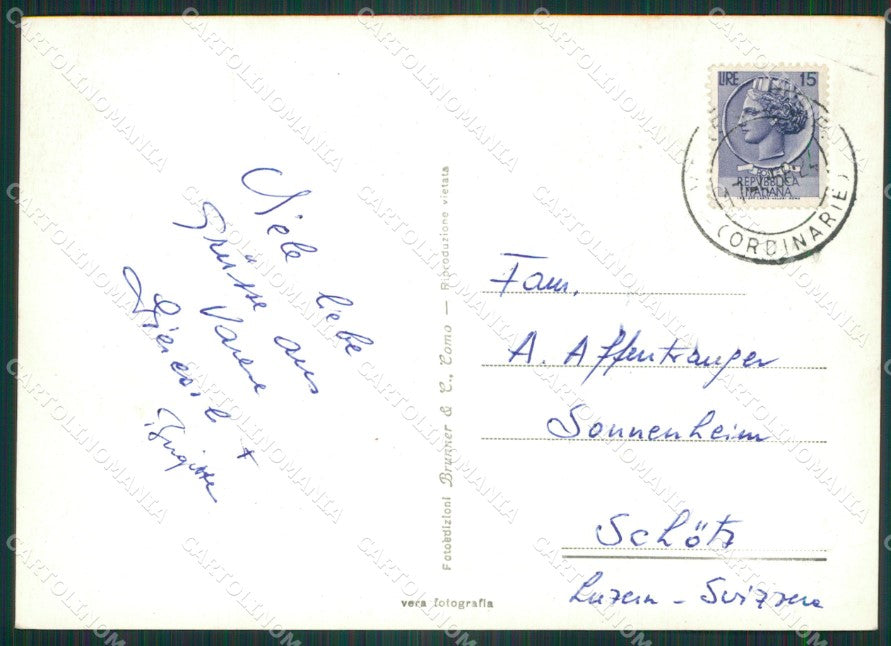 Viele liebe
Grüsse aus
Varese
+
Brigitte
Fotoedizioni Brunner & C., Como — Riproduzione vietata
vera fotografia
LIRE 15
REPVBBLICA
ITALIANA
(ORDINARIE)
Fam.
A. Affentranger
Sonnenheim
Schötz
Luzern - Svizzera
CARTOLINOMANIA